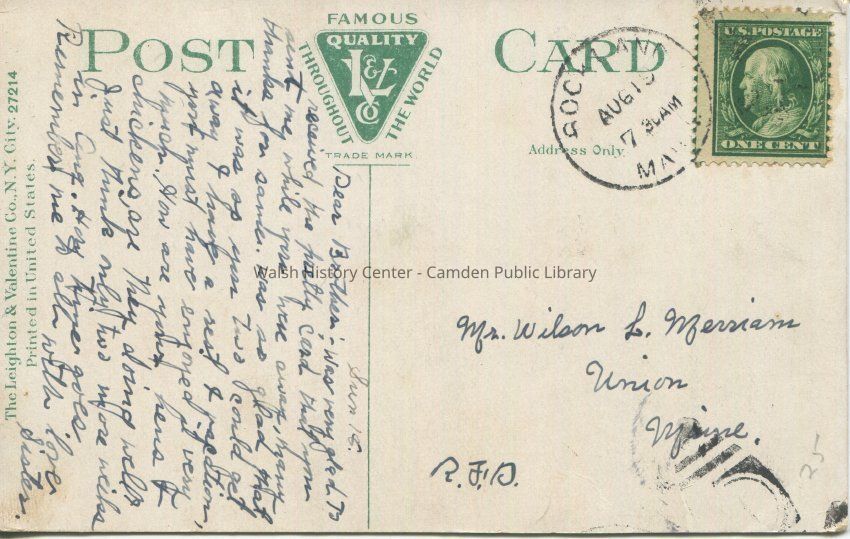 POST CARD
FAMOUS
QUALITY
THROUGHOUT
THE WORLD
L&V
Co
TRADE MARK
Address Only
ROCKLAND
AUG 15
7 30 AM
MAINE
U.S. POSTAGE
ONE CENT
The Leighton & Valentine Co., N.Y. City. 27214
Printed in United States.
Sun 15.
Dear Brother:- Was very glad to
receive the pretty card that you
sent me while you were away, many
thanks for same. Was so glad that
it was so you two could get
away & have a rest & vacation,
you must have enjoyed it very
much. How are your hens &
chickens are they doing well?
Just think only two more weeks
in Aug. How time goes.
Remember me to all with love
Sister.
Mr. Wilson L. Merriam
Union
Maine.
R.F.D.
25
Walsh History Center - Camden Public Library